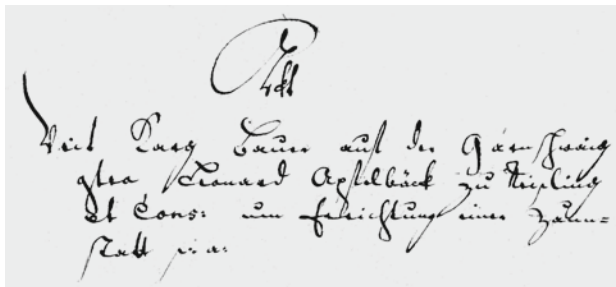 Akt
Veit Karg Bauer auf der Gärnschwaig
gtra Leonard Apflbäck zu Neipling
et Cons: um Errichtung einer Zaun=
statt p: a: